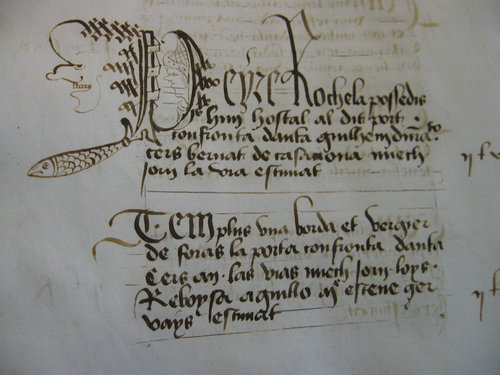 Peyre Rochela possedis
hun hostal al dit port
confronta danta guilhem
cers bernat de casanova miech
jorn la via estimat
Item plus una borda et verger
de foras la porta confronta danta
cers an las vias miech jorn loys
Reboysa aguillo estene ger
vays estimat